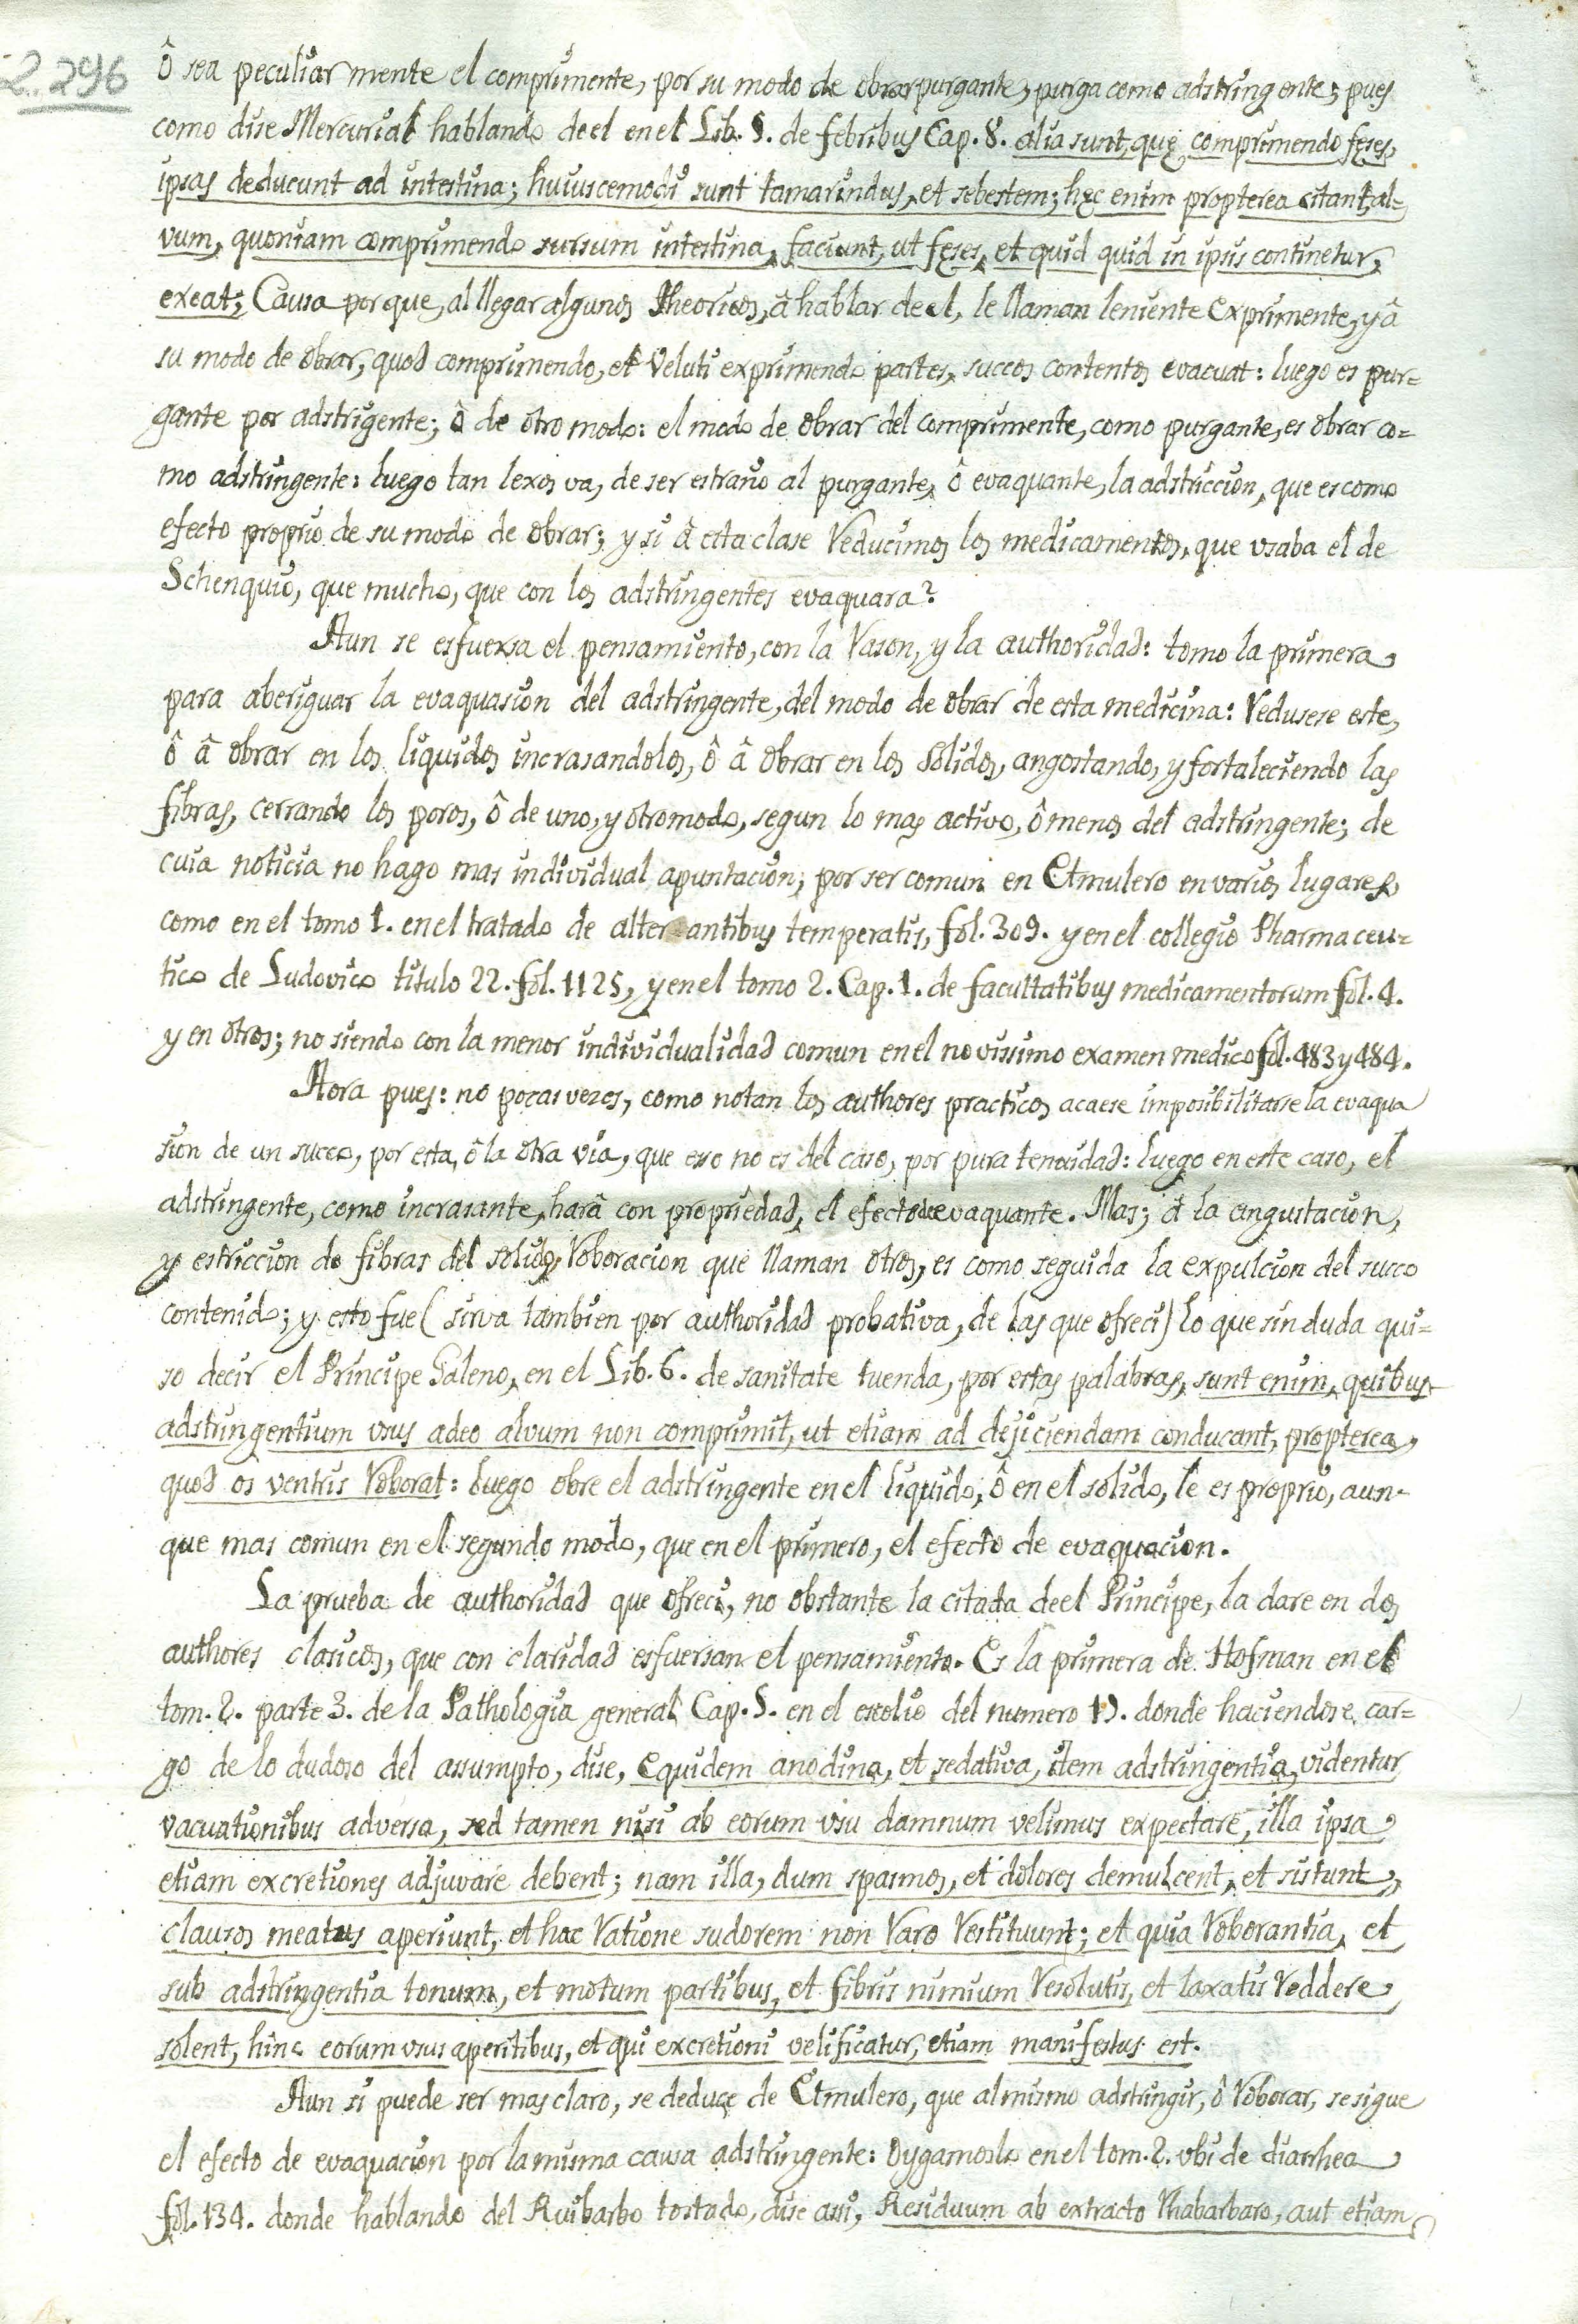 2.296
ô sea peculiarmente el comprimente, por su modo de obrar purgante, purga como adstringente; pues
como dise Mercurial hablando de el en el Lib. 5. de febribus Cap. 8. alia sunt, quę comprimendo fęses,
ipsas deducunt ad intestina; huiuscemodi sunt tamarindus, et sebestem; hęc enim propterea citant al-
vum, quoniam comprimendo sursum intestina, faciunt, ut fęses, et quid quid in ipsis continetur,
exeat; Causa porque, al llegar algunos Theoricos, â hablar de el, le llaman leniente Exprimente, y â
su modo de obrar, quod comprimendo, et veluti exprimendo partes, succos contentos evacuat: luego es pur=
gante por adstrigente; ô de otro modo: el modo de obrar del comprimente, como purgante, es obrar co=
mo adstringente: luego tan lexos va, de ser estraño al purgante, ô evaquante, la adstriccion, que es como
efecto proprio de su modo de obrar; y si â esta clase Reducimos los medicamentos, que usaba el de
Schenquio, que mucho, que con los adstringentes evaquara?
Aun se esfuersa el pensamiento, con la Rason, y la authoridad: tomo la primera
para aberiguar la evaquasion del adstringente, del modo de obrar de esta medicina: Redusese este,
ô â obrar en los liquidos incrasandolos, ô â obrar en los solidos, angostando, y fortaleciendo las
fibras, cerrando los poros, ô de uno, y otro modo, segun lo mas activo, ô menos del adstringente; de
cuia noticia no hago mas individual apuntacion; por ser comun en Etmulero en varios lugares,
como en el tomo 1. en el tratado de alterantibus temperatis, fol. 309. y en el collegio Pharmaceu=
tico de Ludovico titulo 22. fol. 1125, y en el tomo 2. Cap. 1. de facultatibus medicamentorum fol. 4.
y en otros; no siendo con la menor individualidad comun en el novissimo examen medico fol. 483 y 484.
Aora pues: no pocas veces, como notan los authores practicos acaese imposibilitarse la evaqua
sion de un succo, por esta, ô la otra via, que esso no es del caso, por pura tenuidad: luego en este caso, el
adstringente, como incrasante, harâ con propriedad, el efecto de evaquante. Mas; â la angustacion,
y estriccion de fibras del solido, Roboracion que llaman otros, es como seguida la expulcion del succo
contenido; y esto fue (sirva tambien por authoridad probativa, de las que ofreci) lo que sin duda qui=
so decir el Principe Galeno, en el Lib. 6. de sanitate tuenda, por estas palabras, sunt enim, quibus
adstringentium usus adeo alvum non comprimit, ut etiam ad dejiciendam conducant, propterea,
quod os ventris Roborat: luego obre el adstringente en el liquido, ô en el solido, le es proprio, aun-
que mas comun en el segundo modo, que en el primero, el efecto de evaquacion.
La prueba de authoridad que ofreci, no obstante la citada de el Principe, la dare en dos
authores clasicos, que con claridad esfuersan el pensamiento. Es la primera de Hofman en el
tom. 2. parte 3. de la Pathologia general Cap. 5. en el escolio del numero 19. donde haciendose car=
go de lo dudoso del assumpto, dise, Equidem anodina, et sedativa, item adstringentia, videntur
vacuationibus adversa, sed tamen nisi ab eorum usu damnum velimus expectare, illa ipsa
etiam excretiones adjuvare debent; nam illa, dum spasmos, et dolores demulcent, et sistunt,
clausos meatus aperiunt, et hac Ratione sudorem non Raro Restituunt; et quia Roborantia, et
sub adstringentia tonum, et motum partibus, et fibris nimium Resolutis, et laxatis Reddere
solent, hinc eorum usus aperitibus, et qui excretioni velificatur, etiam manifestus est.
Aun si puede ser mas claro, se deduçe de Etmulero, que al mismo adstringir, ô Roborar, se sigue
el efecto de evaquacion por la misma causa adstringente: Oygamoslo en el tom. 2. ubi de diarrhea
fol. 134. donde hablando del Ruibarbo tostado, dise assi, Residuum ab extracto Rhabarbaro, aut etiam